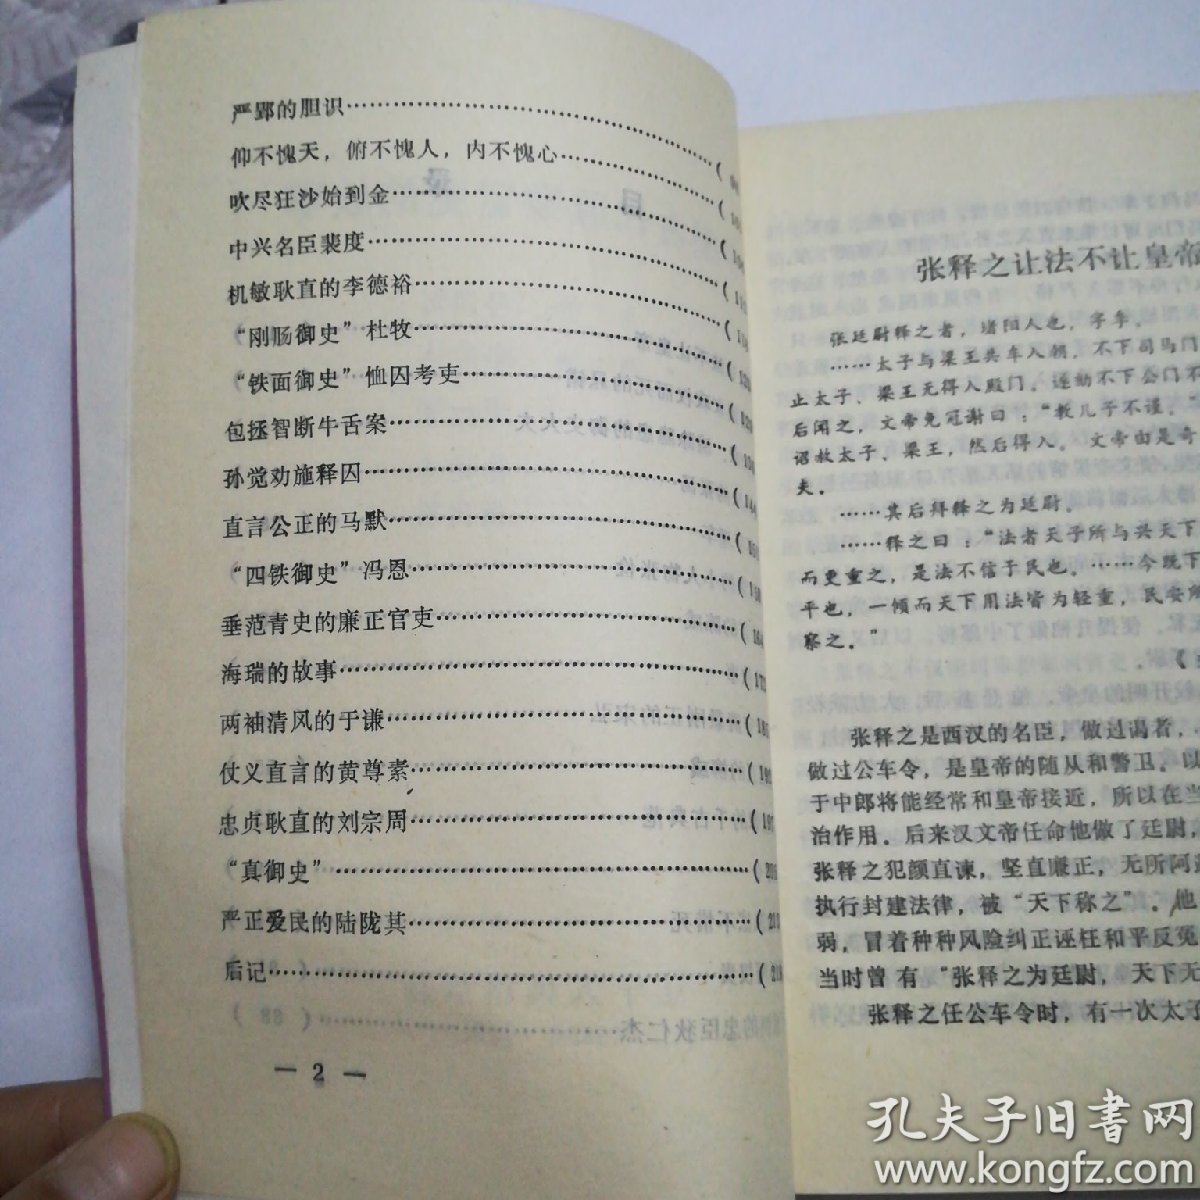 严郢的胆识……………………………………(
仰不愧天，俯不愧人，内不愧心……………(
吹尽狂沙始到金………………………………(
中兴名臣裴度…………………………………(
机敏耿直的李德裕……………………………(
“刚肠御史”杜牧……………………………(
“铁面御史”恤囚考吏………………………(
包拯智断牛舌案………………………………(
孙觉劝施释囚…………………………………(
直言公正的马默………………………………(
“四铁御史”冯恩……………………………(
垂范青史的廉正官吏…………………………(
海瑞的故事……………………………………(17
两袖清风的于谦………………………………(
仗义直言的黄尊素……………………………(19
忠贞耿直的刘宗周……………………………(19
“真御史”……………………………………(20
严正爱民的陆陇其……………………………(21
后记……………………………………………(21
— 2 —
张释之让法不让皇帝
张廷尉释之者，堵阳人也，字季。
……太子与梁王共车入朝，不下司马门
止太子、梁王无得入殿门。遂劾不下公门不
后闻之，文帝免冠谢曰：“教儿子不谨。”
诏赦太子、梁王，然后得入。文帝由是奇
夫。
……其后拜释之为廷尉。
……释之曰：“法者天子所与共天下
而更重之，是法不信于民也。……今既下
平也，一倾而天下用法皆为轻重，民安所
察之。”
张释之是西汉的名臣，做过谒者，
做过公车令，是皇帝的随从和警卫。以
于中郎将能经常和皇帝接近，所以在当
治作用。后来汉文帝任命他做了廷尉，
张释之犯颜直谏，坚直廉正，无所阿
执行封建法律，被“天下称之”．他
弱，冒着种种风险纠正诬枉和平反冤
当时曾有“张释之为廷尉，天下无
张释之任公车令时，有一次太子
孔夫子旧书网
www.kongfz.com